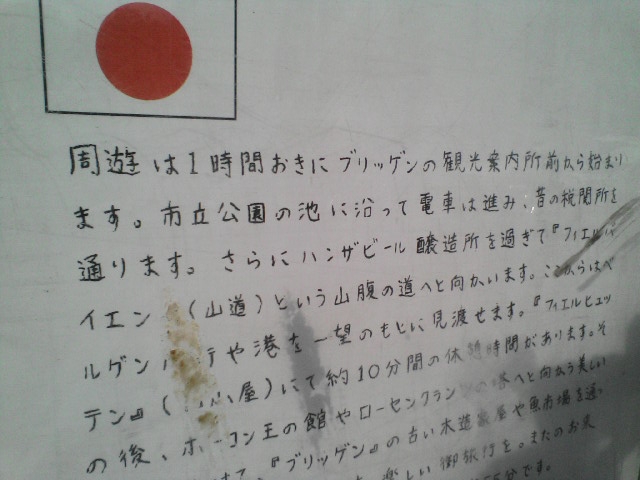 周遊は1時間おきにブリッゲンの観光案内所前から始まり
ます。市立公園の池に沿って電車は進み、昔の税関所を
通ります。さらにハンザビール醸造所を過ぎて『フィエルバ
イエン (山道)という山腹の道へと向かいます。ここからはベ
ルゲン や港を一望のもとに見渡せます。『フィエルヒュッ
テン』( 屋)にて約10分間の休憩時間があります。そ
の後、ホーコン王の館やローセンクランツの塔へと向かう美しい
『ブリッゲン』の古い木造家屋や魚市場を通っ
楽しい御旅行を。またのお来
55分です。